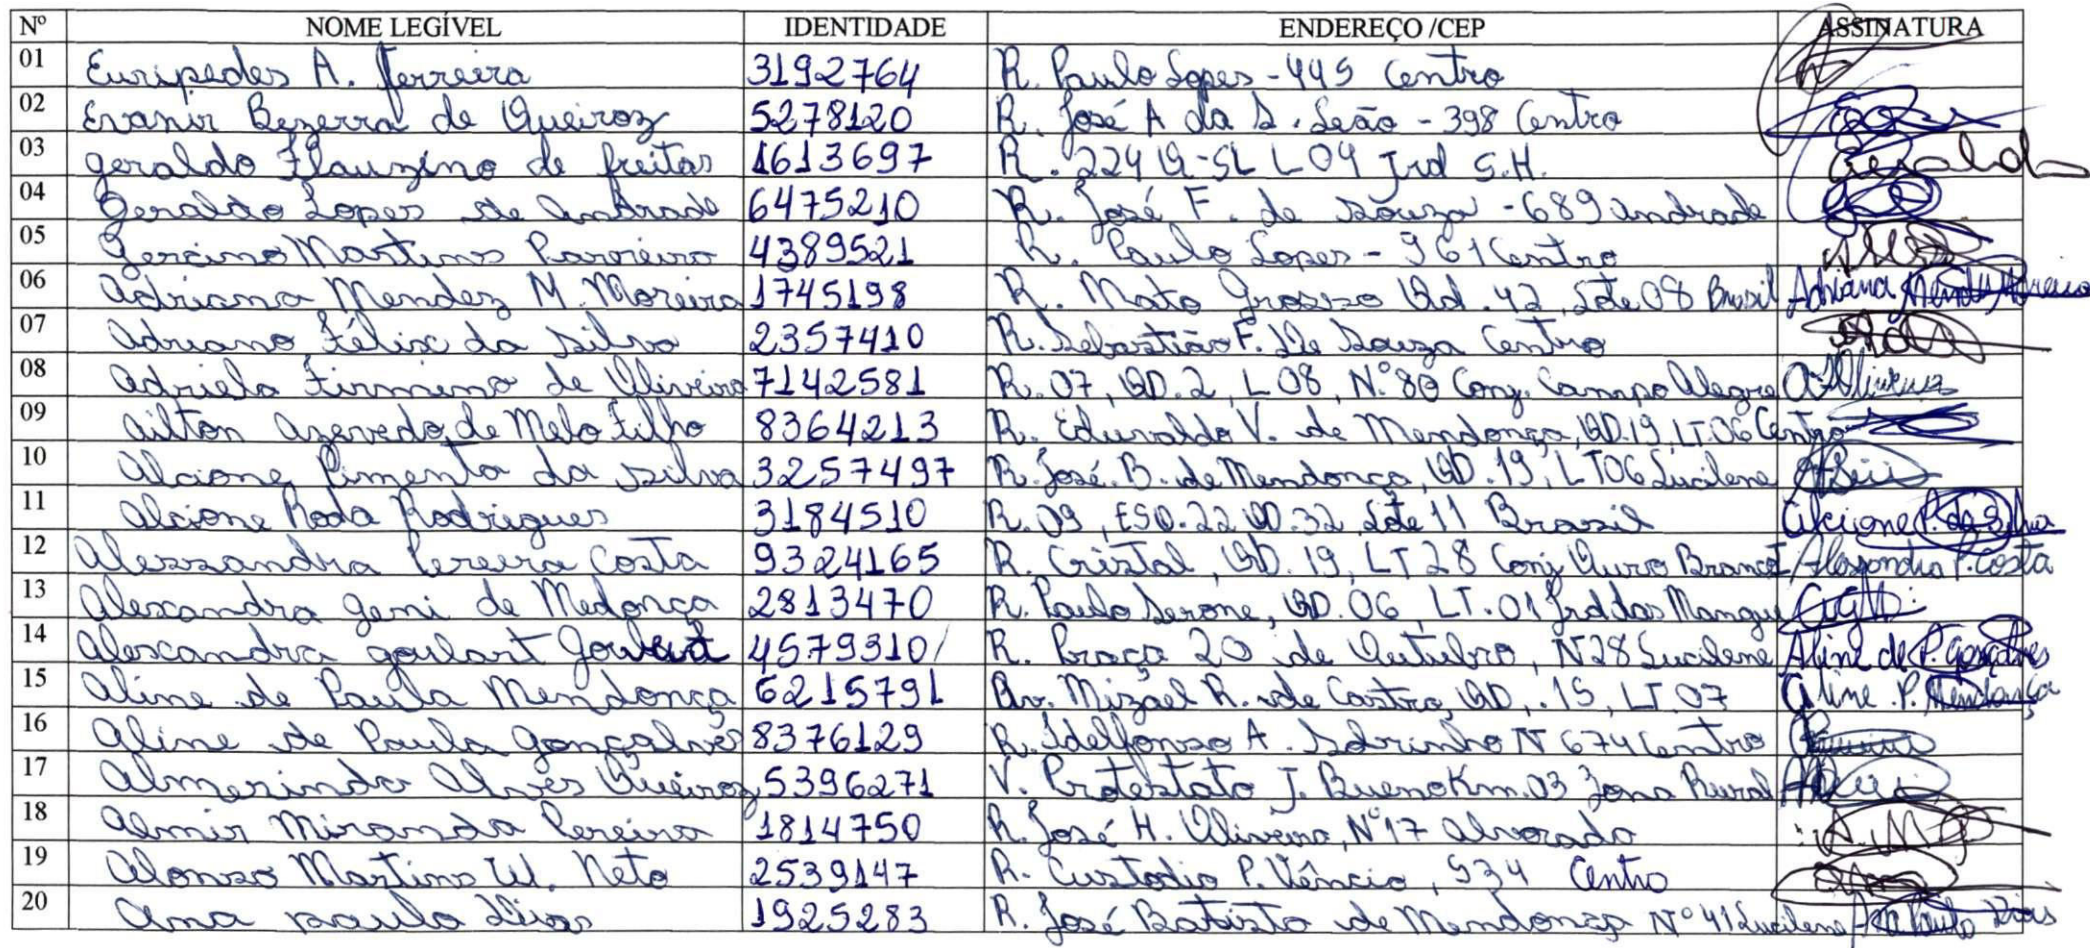 Nº NOME LEGÍVEL IDENTIDADE ENDEREÇO /CEP ASSINATURA
01 Euripedes A. Ferreira 3192764 R. Paulo Lopes - 445 Centro
02 Evanir Bezerra de Queiroz 5278120 R. José A da S. Leão - 398 Centro
03 Geraldo Flauzino de freitas 1613697 R. 224 Q-SL L 04 Jrd S.H. Geraldo
04 Geraldo Lopes de Andrade 6475210 R. José F. de Souza - 689 Andrade
05 Gercino Martins Parreira 4389521 R. Paulo Lopes - 961 Centro
06 Adriana Mendez M. Moreira 1745198 R. Mato Grosso Qd. 42, Lote 08 Brasil Adriana Mendes Moreira
07 Adriano Félix da Silva 2357410 R. Sebastião F. De Souza Centro
08 Adriela Firmino de Oliveira 7142581 R. 07, QD. 2, L 08, N.º 80 Conj. Campo Alegre
09 Ailton Azevedo de Melo Filho 8364213 R. Edivaldo V. de Mendonça, QD. 19, LT. 06 Centro
10 Alcione Pimenta da Silva 3257497 R. José. B. de Mendonça, QD. 19, LT 06 Lucilene
11 Alcione Roda Rodrigues 3184510 R. 09, ESQ. 22 QD. 32 Lote 11 Brasil Alcione P. da Silva
12 Alessandra Pereira Costa 9324165 R. Cristal, QD. 19, LT 28 Conj Ouro Branco I Alessandra P. Costa
13 Alexandra Geni de Medonça 2813470 R. Paulo Serone, QD. 06, LT. 01 Jrd das Mangue
14 Alexandra goulart 4579310 R. Praça 20 de Outubro, N 28 Lucilene Aline de P. Gonçalves
15 Aline de Paula Mendonça 6215791 Av. Mizael R. de Castro, QD, . 15, LT. 07 Aline P. Mendonça
16 Aline de Paula Gonçalves 8376129 R. Idelfonso A. Sobrinho N 674 Centro
17 Almerinda Alves Queiroz 5396271 V. Protestato J. Bueno Km. 03 Zona Rural
18 Almir Miranda Pereira 1814750 R. José H. Oliveira, Nº 17 Alvorada
19 Alonso Martins W. Neto 2539147 R. Custodio P. Vêncio, 934 Centro
20 Ana paula Dias 1925283 R. José Batista de Mendonça Nº 41 Lucilene Ana Paula Dias